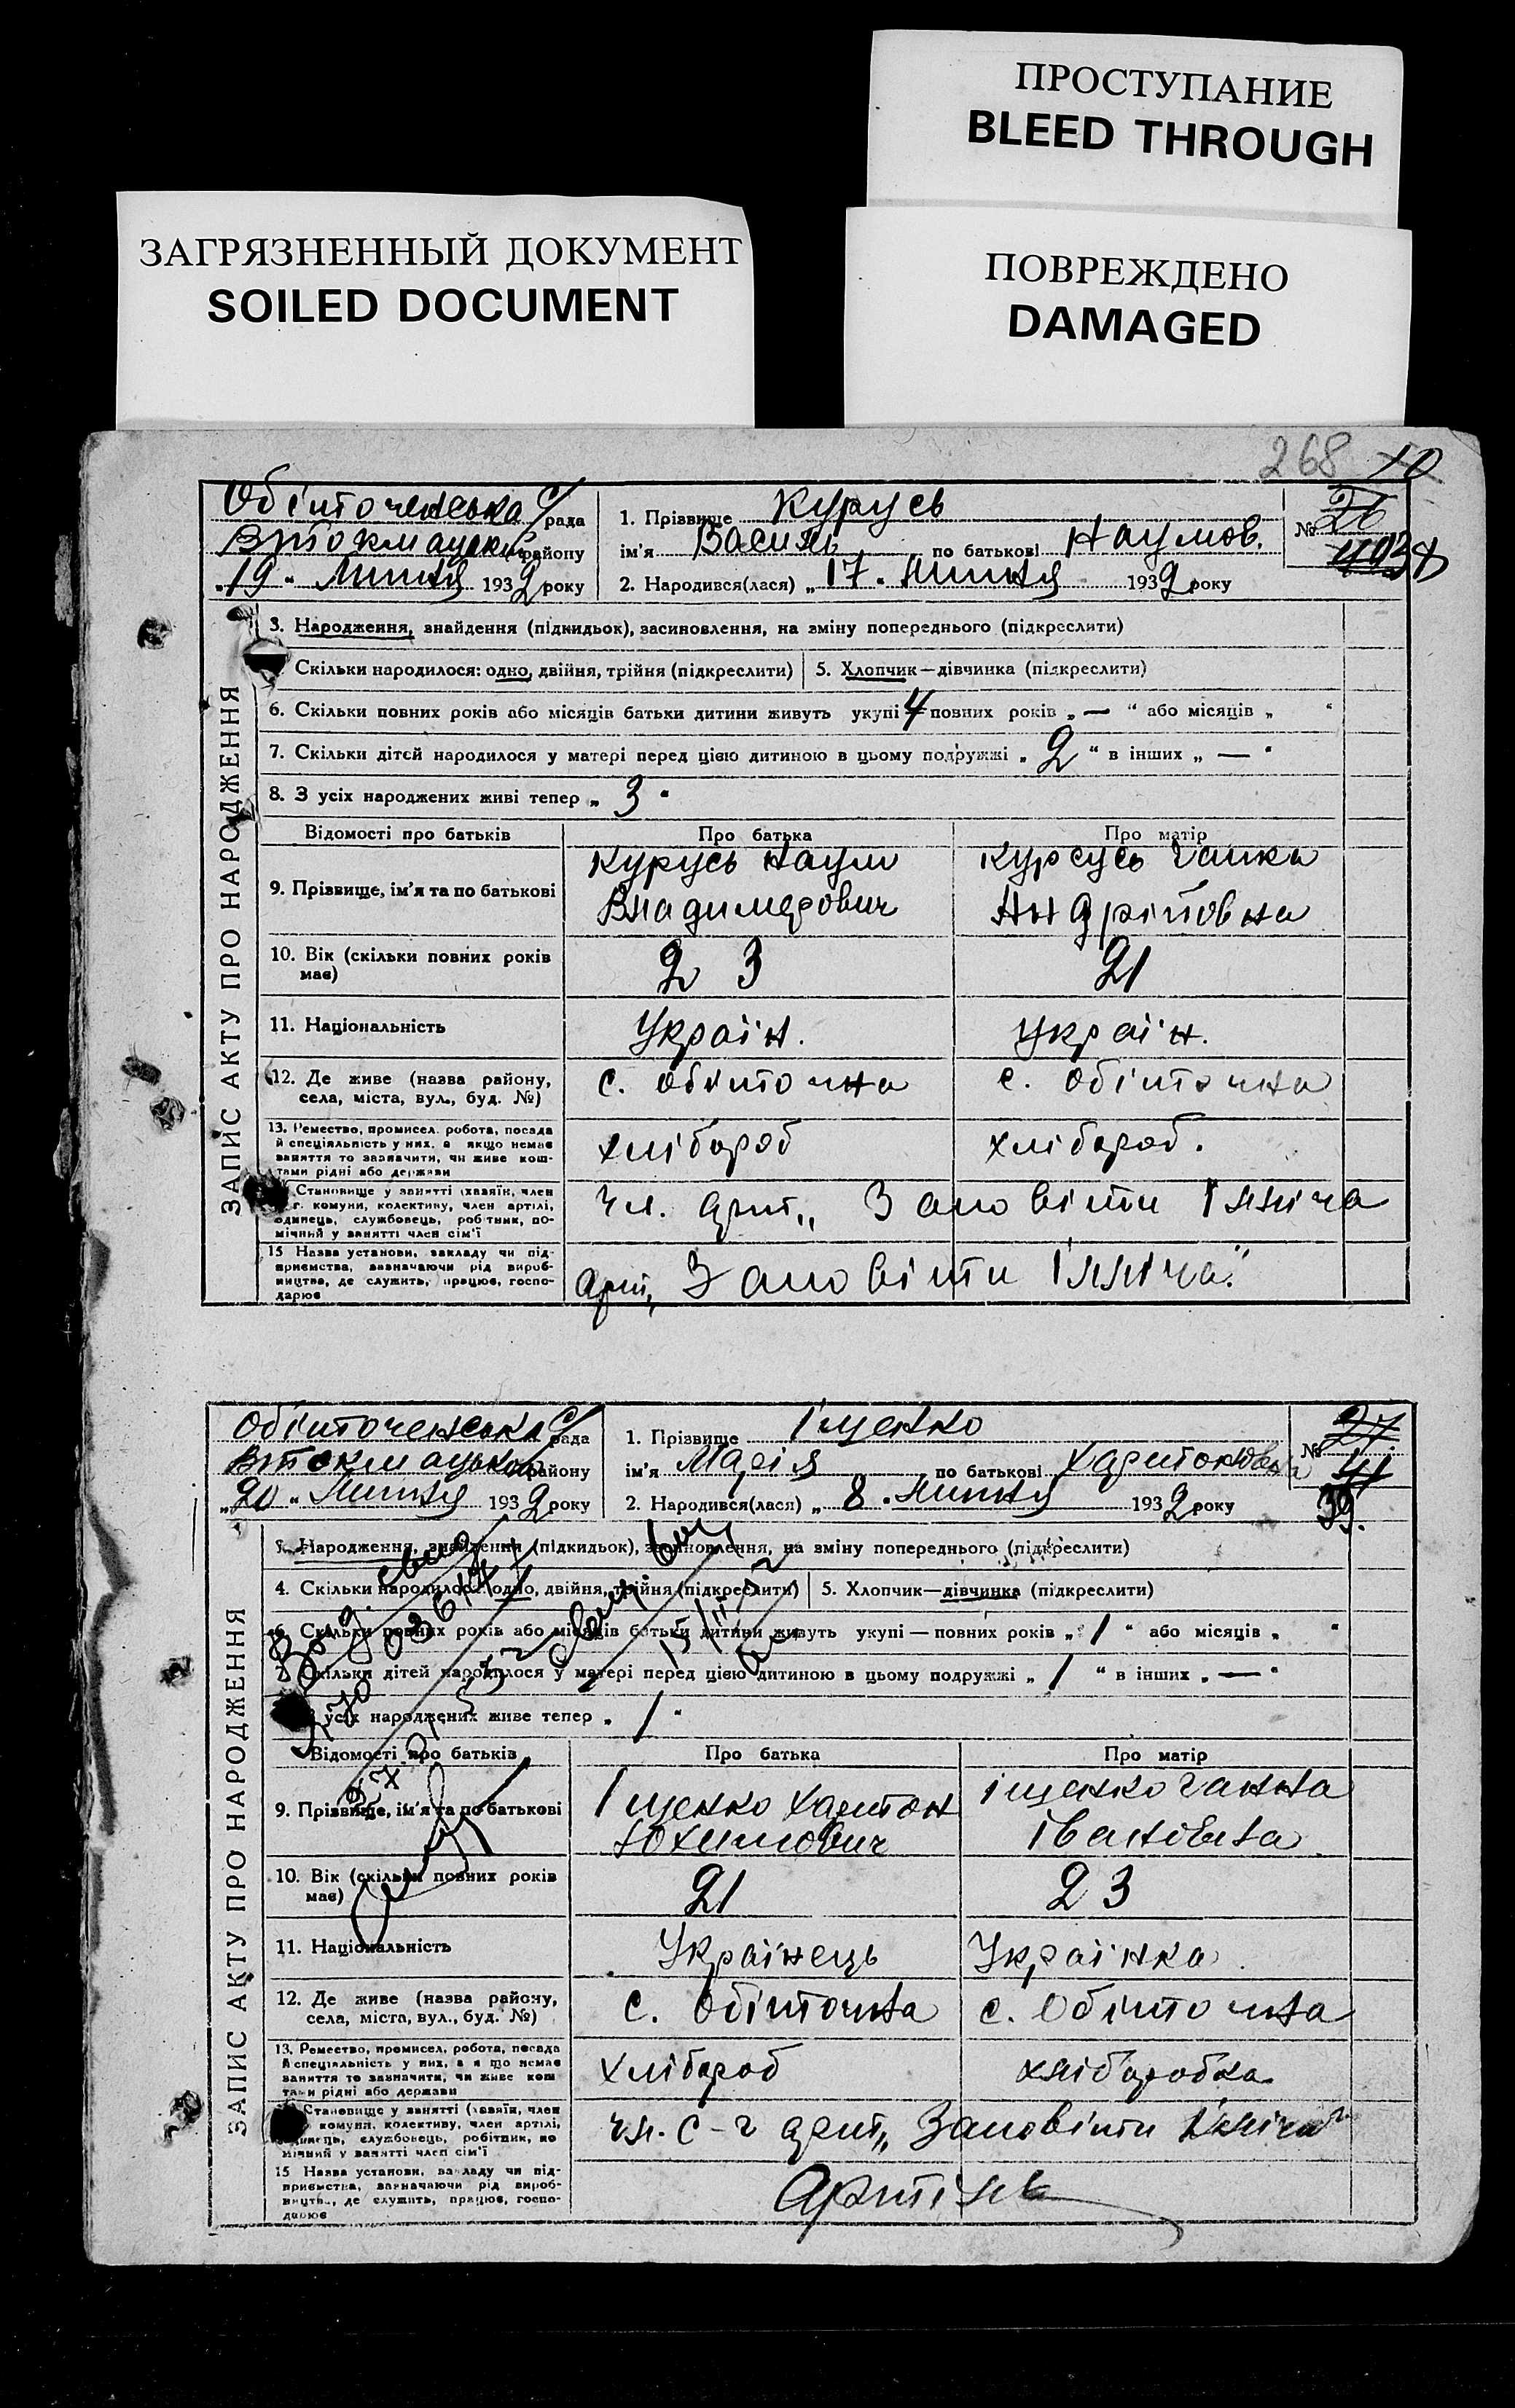 ПРОСТУПАНИЕ
BLEED THROUGH
ЗАГРЯЗНЕННЫЙ ДОКУМЕНТ
SOILED DOCUMENT
ПОВРЕЖДЕНО
DAMAGED
268 10
Обіточенська с/рада
району
"19" Липня 1932 року
1. Прізвище Курусь
ім'я Василь по батькові Наумов.
2. Народився(лася) "17" Липня 1932 року
№ 26
ЗАПИС АКТУ ПРО НАРОДЖЕННЯ
3. Народження, знайдення (підкидьок), засиновлення, на зміну попереднього (підкреслити)
Скільки народилося: одно, двійня, трійня (підкреслити) 5. Хлопчик—дівчинка (підкреслити)
6. Скільки повних років або місяців батьки дитини живуть укупі 4 повних років „ — " або місяців „ "
7. Скільки дітей народилося у матері перед цією дитиною в цьому подружжі „ 2 " в інших „ — "
8. З усіх народжених живі тепер „ 3 "
Відомості про батьків Про батька Про матір
9. Прізвище, ім'я та по батькові
Курусь Наум
Владимерович
Курсусь Ганка
Андрійовна
10. Вік (скільки повних років має) 23 21
11. Національність Україн. Україн.
12. Де живе (назва району,
села, міста, вул., буд. №)
с. Обіточна с. Обіточна
13. Ремество, промисел, робота, посада
й спеціяльність у них, а якщо немає
заняття то зазначити, чи живе кош-
тами рідні або держави
хлібороб хлібороб.
Становище у занятті (хазяїн, член
с.-г. комуни, колективу, член артілі,
одинець, службовець, робітник, по-
мічний у занятті член сім'ї
Чл. арт. „Заповіти Ілліча
15 Назва установи, закладу чи під-
приємства, зазначаючи рід вироб-
ництва, де служить, працює, госпо-
дарює
Арт. „Заповіти Ілліча"
Обіточенська с/рада
району
"20" Липня 1932 року
1. Прізвище Іщенко
ім'я Марія по батькові Харитоновна
2. Народився(лася) „8" Липня 1932 року
№ 27
41
39.
ЗАПИС АКТУ ПРО НАРОДЖЕННЯ
3. Народження, знайдення (підкидьок), засиновлення, на зміну попереднього (підкреслити)
4. Скільки народилося: одно, двійня, трійня (підкреслити) 5. Хлопчик—дівчинка (підкреслити)
6. Скільки повних років або місяців батьки дитини живуть укупі — повних років „ 1 " або місяців „ "
7. Скільки дітей народилося у матері перед цією дитиною в цьому подружжі „ 1 " в інших „ — "
усіх народжених живе тепер „ 1 "
Відомості про батьків Про батька Про матір
9. Прізвище, ім'я та по батькові
Іщенко Харитон
Юхимович
Іщенко Ганна
Івановна
10. Вік (скільки повних років має) 21 23
11. Національність Українець Українка
12. Де живе (назва району,
села, міста, вул., буд. №)
с. Обіточна с. Обіточна
13. Ремество, промисел, робота, посада
й спеціяльність у них, а якщо немає
заняття то зазначити, чи живе кош
тами рідні або держави
Хлібороб хліборобка
Становище у занятті (хазяїн, член
комуни, колективу, член артілі,
одинець, службовець, робітник, по
мічний у занятті член сім'ї
чл. с-г арт. „Заповіти Ілліча"
15 Назва установи, закладу чи під-
приємства, зазначаючи рід вироб-
ництва, де служить, працює, госпо-
дарює
Артіль